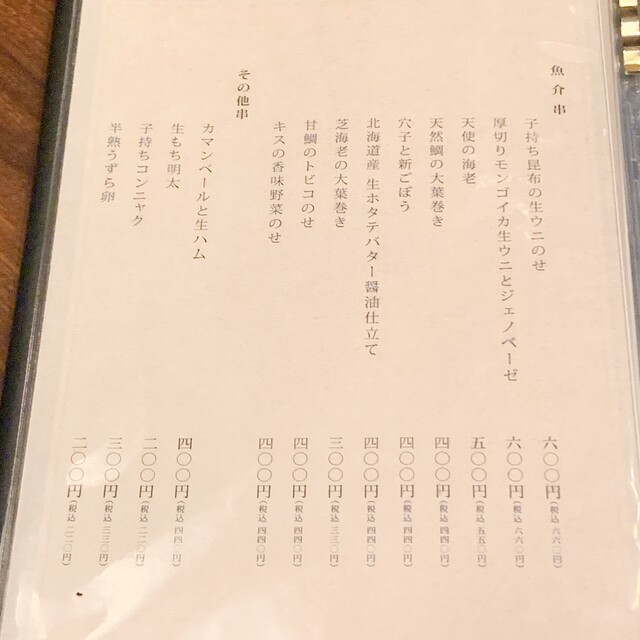 魚介串
子持ち昆布の生ウニのせ 六〇〇円(税込 六六〇円)
厚切りモンゴイカ生ウニとジェノベーゼ 六〇〇円(税込 六六〇円)
天使の海老 五〇〇円(税込 五五〇円)
天然鯛の大葉巻き 四〇〇円(税込 四四〇円)
穴子と新ごぼう 四〇〇円(税込 四四〇円)
北海道産 生ホタテバター醤油仕立て 四〇〇円(税込 四四〇円)
芝海老の大葉巻き 三〇〇円(税込 三三〇円)
甘鯛のトビコのせ 四〇〇円(税込 四四〇円)
キスの香味野菜のせ 四〇〇円(税込 四四〇円)
その他串
カマンベールと生ハム 四〇〇円(税込 四四〇円)
生もち明太 二〇〇円(税込 二二〇円)
子持ちコンニャク 三〇〇円(税込 三三〇円)
半熟うずら卵 二〇〇円(税込 二二〇円)